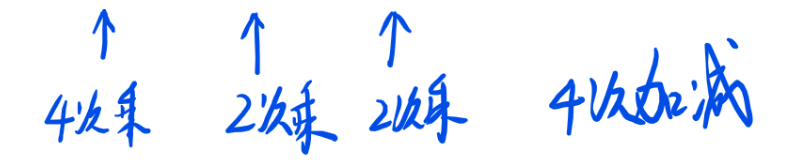 4次乘 2次乘 2次乘 4次加减